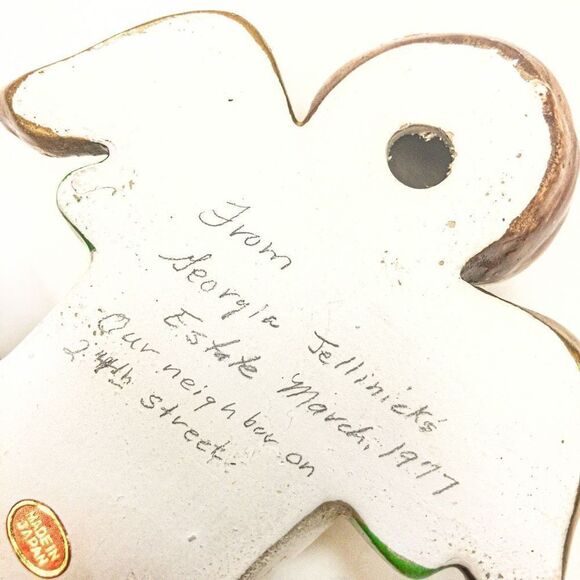 From
Georgia Jellinick's
Estate March, 1977
Our neighbor on
24th Street.
MADE IN
JAPAN